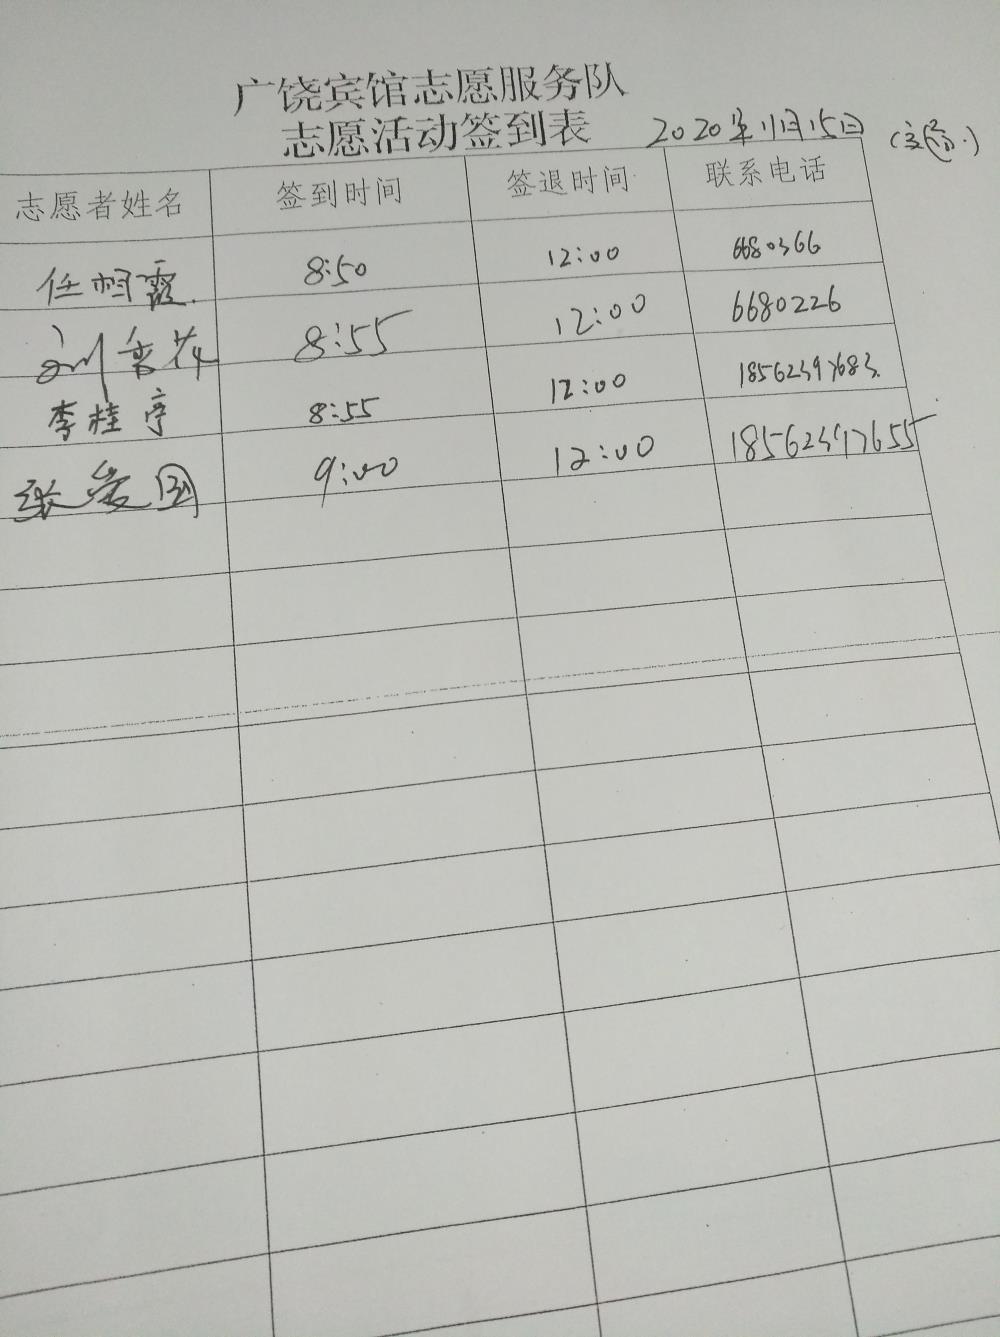 广饶宾馆志愿服务队
志愿活动签到表 2020年11月15日
志愿者姓名 签到时间 签退时间 联系电话
任相霞 8:50 12:00 6680366
刘秀花 8:55 12:00 6680226
李桂亭 8:55 12:00 18562397683
张爱国 9:00 12:00 18562397655